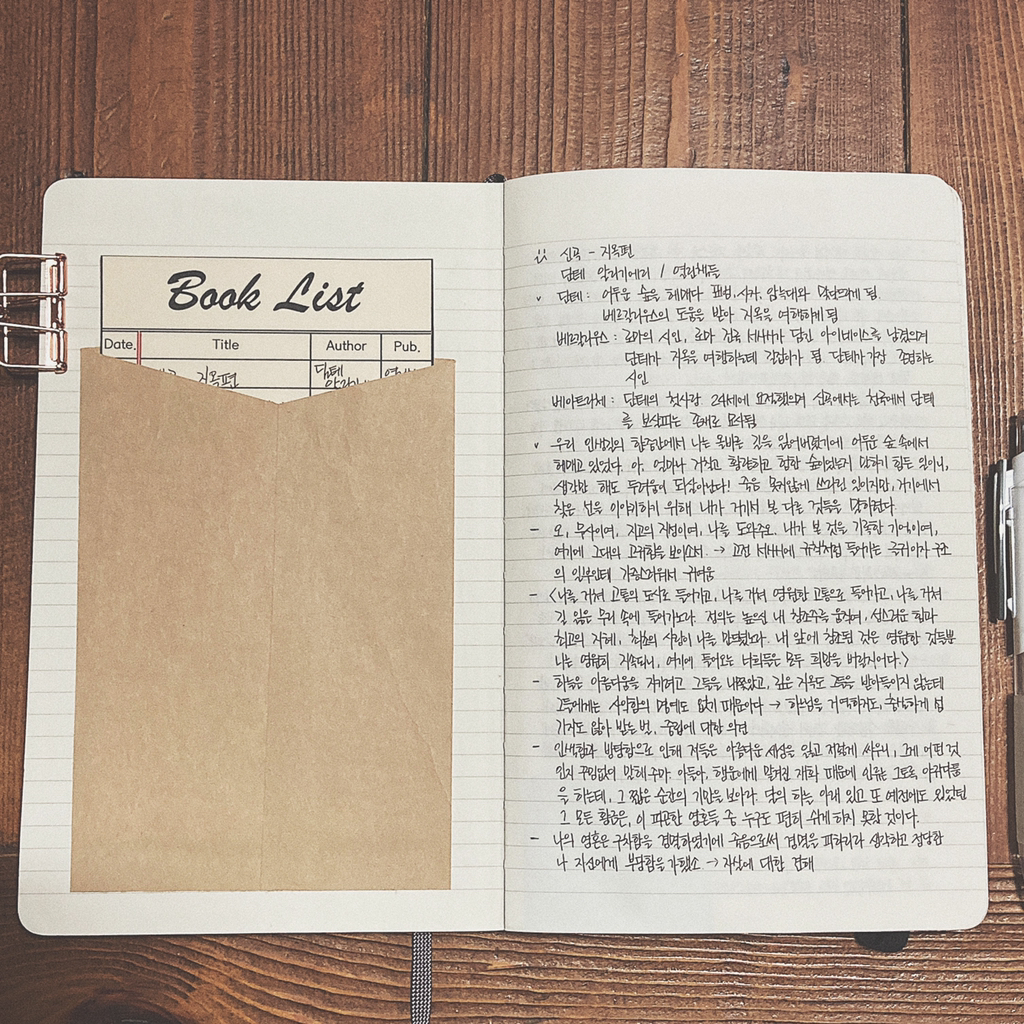 Book List
Date. Title Author Pub.
지옥편 단테
신곡 - 지옥편
단테 알리기에리 / 열린책들
v 단테 : 어두운 숲을 헤매다 표범, 사자, 암늑대와 맞닥뜨리게 됨.
베르길리우스의 도움을 받아 지옥을 여행하게 됨
베르길리우스 : 로마의 시인, 로마 건국 서사시가 담긴 아이네이스를 남겼으며
단테가 지옥을 여행하는데 길잡이가 됨. 단테가 가장 존경하는
시인
베아트리체 : 단테의 첫사랑. 24세에 요절했으며 신곡에서는 천국에서 단테
를 보살피는 존재로 묘사됨
v 우리 인생길의 한중간에서 나는 올바른 길을 잃어버렸기에 어두운 숲 속에서
헤매고 있었다. 아, 얼마나 거칠고 황량하고 험한 숲이었는지 말하기 힘든 일이니,
생각만 해도 두려움이 되살아난다! 죽음 못지않게 쓰라린 일이지만, 거기에서
찾은 선을 이야기하기 위해 내가 거기서 본 다른 것들을 말하련다.
- 오, 무사이여, 지고의 지성이여, 나를 도와주오. 내가 본 것을 기록한 기억이여,
여기에 그대의 고귀함을 보이소서. → 고전 서사시에 규칙처럼 들어가는 구조
의 일부인데 귀여움
- <나를 거쳐 고통의 도시로 들어가고, 나를 거쳐 영원한 고통으로 들어가고, 나를 거쳐
길 잃은 무리 속에 들어가노라. 정의는 높으신 내 창조주를 움직여, 성스러운 힘과
최고의 지혜, 최초의 사랑이 나를 만드셨노라. 내 앞에 창조된 것은 영원한 것들뿐
나는 영원히 지속되니, 여기에 들어오는 너희들은 모든 희망을 버릴지어다.>
- 하늘은 아름다움을 지키려고 그들을 내쫓았고, 깊은 지옥도 그들을 받아들이지 않는데
그들에게는 사악함의 명예도 없기 때문이다 → 하느님을 거역하지도, 충실하게 섬
기지도 않아 받는 벌, 중립에 대한 의견
- 인색함과 방탕함으로 인해 저들은 아름다운 세상을 잃고 저렇게 싸우니, 그게 어떤 것
인지 꾸밈없이 말해 주마. 아들아, 행운에게 맡겨진 재화 때문에 인류는 그토록 아귀다툼
을 하는데, 그 짧은 순간의 기만을 보아라. 달의 하늘 아래 있고 또 예전에도 있었던
그 모든 황금은, 이 피곤한 영혼들 중 누구도 편히 쉬게 하지 못할 것이다.
- 나의 영혼은 경멸하였기에 죽음으로써 경멸을 피하리라 생각하고 정당한
나 자신에게 부당함을 가했소. → 자살에 대한 견해